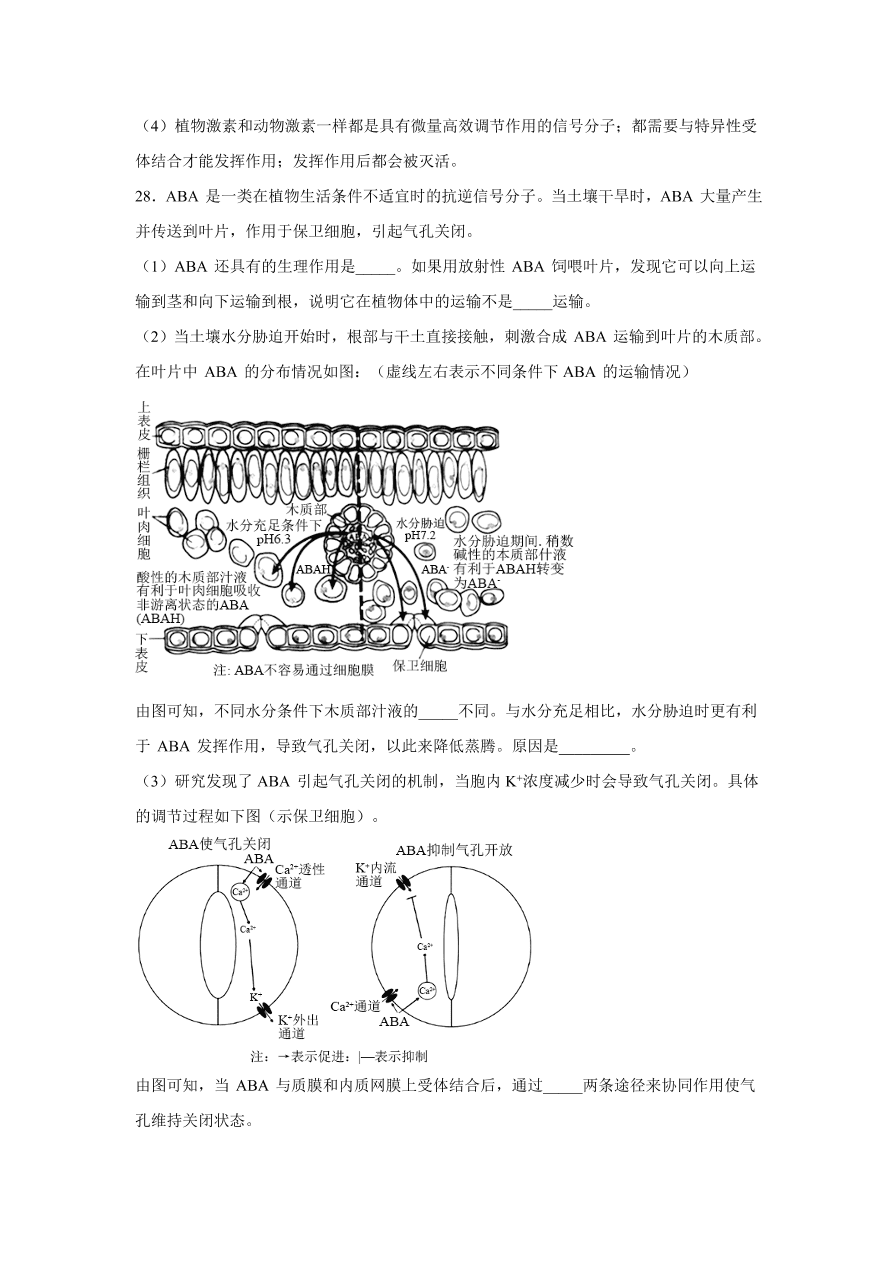 （4）植物激素和动物激素一样都是具有微量高效调节作用的信号分子；都需要与特异性受
体结合才能发挥作用；发挥作用后都会被灭活。
28．ABA 是一类在植物生活条件不适宜时的抗逆信号分子。当土壤干旱时，ABA 大量产生
并传送到叶片，作用于保卫细胞，引起气孔关闭。
（1）ABA 还具有的生理作用是_____。如果用放射性 ABA 饲喂叶片，发现它可以向上运
输到茎和向下运输到根，说明它在植物体中的运输不是_____运输。
（2）当土壤水分胁迫开始时，根部与干土直接接触，刺激合成 ABA 运输到叶片的木质部。
在叶片中 ABA 的分布情况如图：（虚线左右表示不同条件下 ABA 的运输情况）
上表皮
栅栏组织
叶肉细胞
木质部
水分充足条件下
pH6.3
水分胁迫
pH7.2
ABAH
ABA-
水分胁迫期间. 稍数
碱性的本质部什液
有利于ABAH转变
为ABA-
酸性的木质部汁液
有利于叶肉细胞吸收
非游离状态的ABA
(ABAH)
下表皮
注: ABA不容易通过细胞膜
保卫细胞
由图可知，不同水分条件下木质部汁液的_____不同。与水分充足相比，水分胁迫时更有利
于 ABA 发挥作用，导致气孔关闭，以此来降低蒸腾。原因是_________。
（3）研究发现了 ABA 引起气孔关闭的机制，当胞内 K⁺浓度减少时会导致气孔关闭。具体
的调节过程如下图（示保卫细胞）。
ABA使气孔关闭
ABA
Ca²⁺透性
通道
Ca²⁺
Ca²⁺
K⁺
K⁺外出
通道
ABA抑制气孔开放
K⁺内流
通道
Ca²⁺
Ca²⁺
Ca²⁺通道
ABA
注：→表示促进：|—表示抑制
由图可知，当 ABA 与质膜和内质网膜上受体结合后，通过_____两条途径来协同作用使气
孔维持关闭状态。